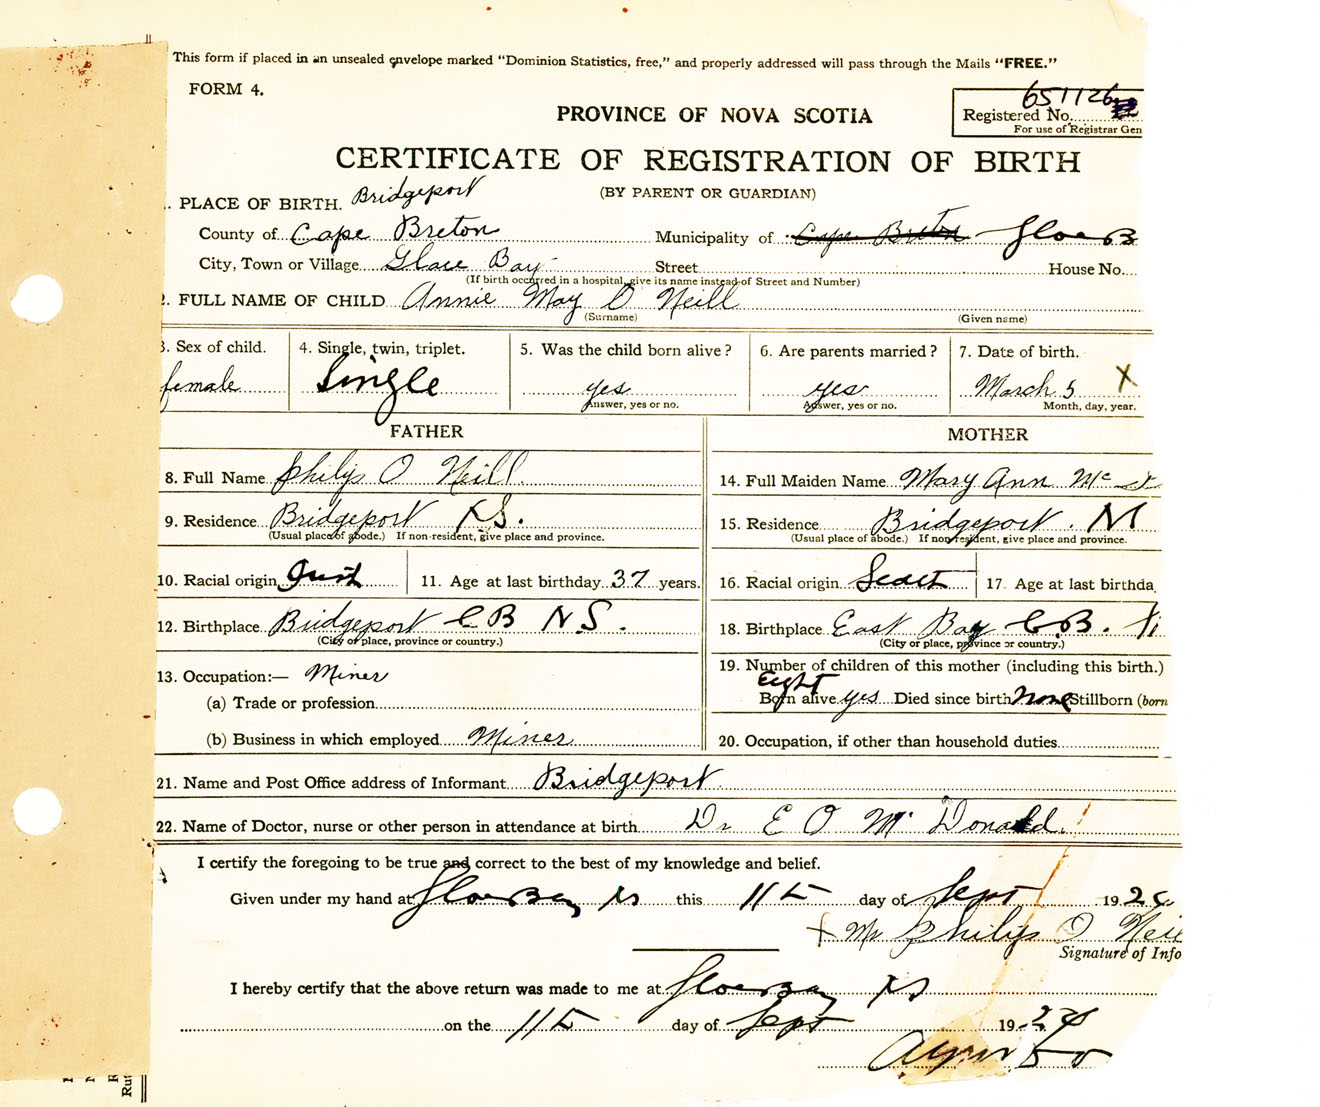 This form if placed in an unsealed envelope marked "Dominion Statistics, free," and properly addressed will pass through the Mails "FREE."
FORM 4.
651126
PROVINCE OF NOVA SCOTIA
Registered No.
For use of Registrar Gen
CERTIFICATE OF REGISTRATION OF BIRTH
(BY PARENT OR GUARDIAN)
1. PLACE OF BIRTH. Bridgeport
County of Cape Breton Municipality of Cape Breton Glace B
City, Town or Village Glace Bay Street House No.
(If birth occurred in a hospital, give its name instead of Street and Number)
2. FULL NAME OF CHILD Annie May O Neill
(Surname) (Given name)
3. Sex of child. 4. Single, twin, triplet. 5. Was the child born alive? 6. Are parents married? 7. Date of birth.
female Single yes yes March 5 X
Answer, yes or no. Answer, yes or no. Month, day, year.
FATHER MOTHER
8. Full Name Philip O Neill 14. Full Maiden Name Mary Ann Mc
9. Residence Bridgeport N.S. 15. Residence Bridgeport. N
(Usual place of abode.) If non-resident, give place and province. (Usual place of abode.) If non-resident, give place and province.
10. Racial origin 11. Age at last birthday 37 years. 16. Racial origin 17. Age at last birthda
12. Birthplace Bridgeport C B N.S. 18. Birthplace East Bay C.B.
(City or place, province or country.) (City or place, province or country.)
13. Occupation:— Miner 19. Number of children of this mother (including this birth.)
Eight
(a) Trade or profession Born alive yes Died since birth none Stillborn (born
(b) Business in which employed Miner 20. Occupation, if other than household duties
21. Name and Post Office address of Informant Bridgeport
22. Name of Doctor, nurse or other person in attendance at birth Dr E O Mc Donald.
I certify the foregoing to be true and correct to the best of my knowledge and belief.
Given under my hand at Glace Bay NS this 11th day of Sept 192
X Mr Philip O Neil
Signature of Info
I hereby certify that the above return was made to me at Glace Bay NS
on the 11th day of Sept 19
Rut